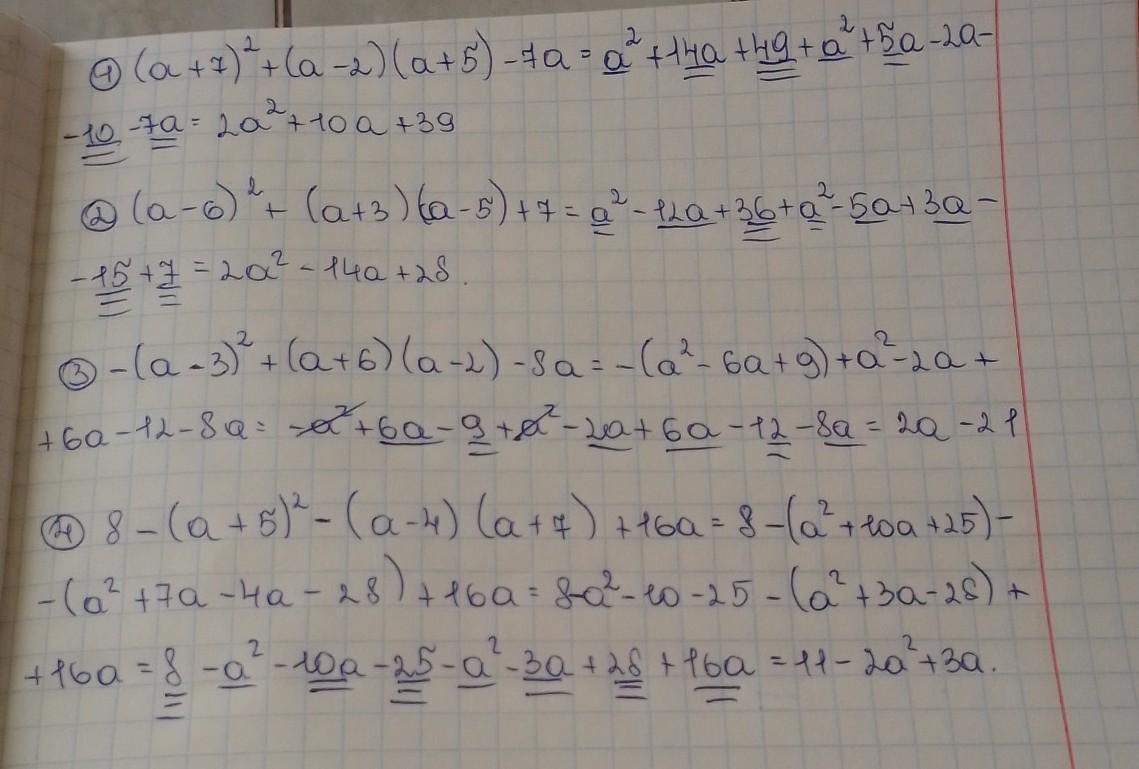 ① (a+7)² + (a-2)(a+5) - 7a = a² + 14a + 49 + a² + 5a - 2a -
- 10 - 7a = 2a² + 10a + 39
② (a-6)² + (a+3)(a-5) + 7 = a² - 12a + 36 + a² - 5a + 3a -
- 15 + 7 = 2a² - 14a + 28.
③ -(a-3)² + (a+6)(a-2) - 8a = -(a² - 6a + 9) + a² - 2a +
+ 6a - 12 - 8a = -a² + 6a - 9 + a² - 2a + 6a - 12 - 8a = 2a - 21
④ 8 - (a+5)² - (a-4)(a+7) + 16a = 8 - (a² + 10a + 25) -
- (a² + 7a - 4a - 28) + 16a = 8 - a² - 10 - 25 - (a² + 3a - 28) +
+ 16a = 8 - a² - 10a - 25 - a² - 3a + 28 + 16a = 11 - 2a² + 3a.